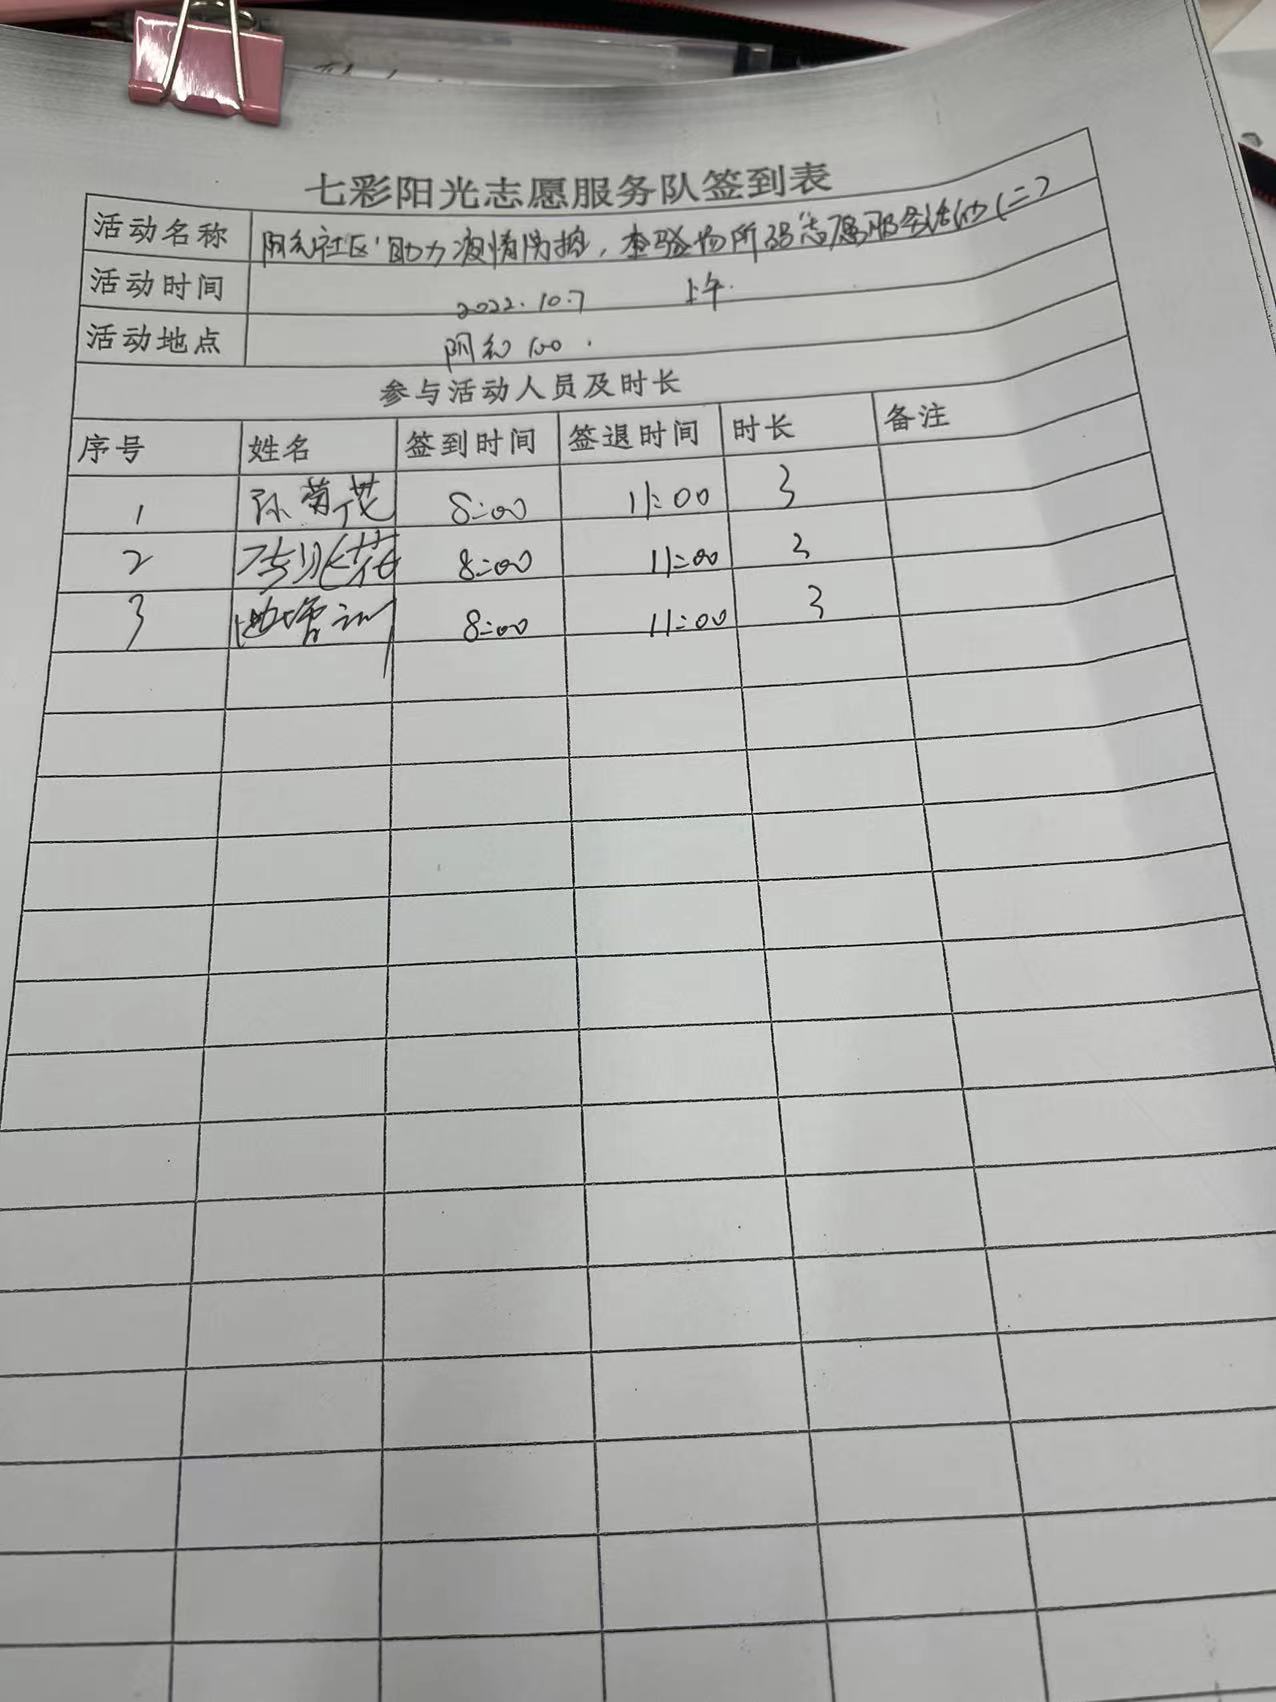 七彩阳光志愿服务队签到表
活动名称 阳和社区"助力疫情防控，查验场所码"志愿服务活动(二)
活动时间 2022.10.7 上午.
活动地点 阳和100.
参与活动人员及时长
序号 姓名 签到时间 签退时间 时长 备注
1 孙菊花 8:00 11:00 3
2 8:00 11:00 3
3 8:00 11:00 3